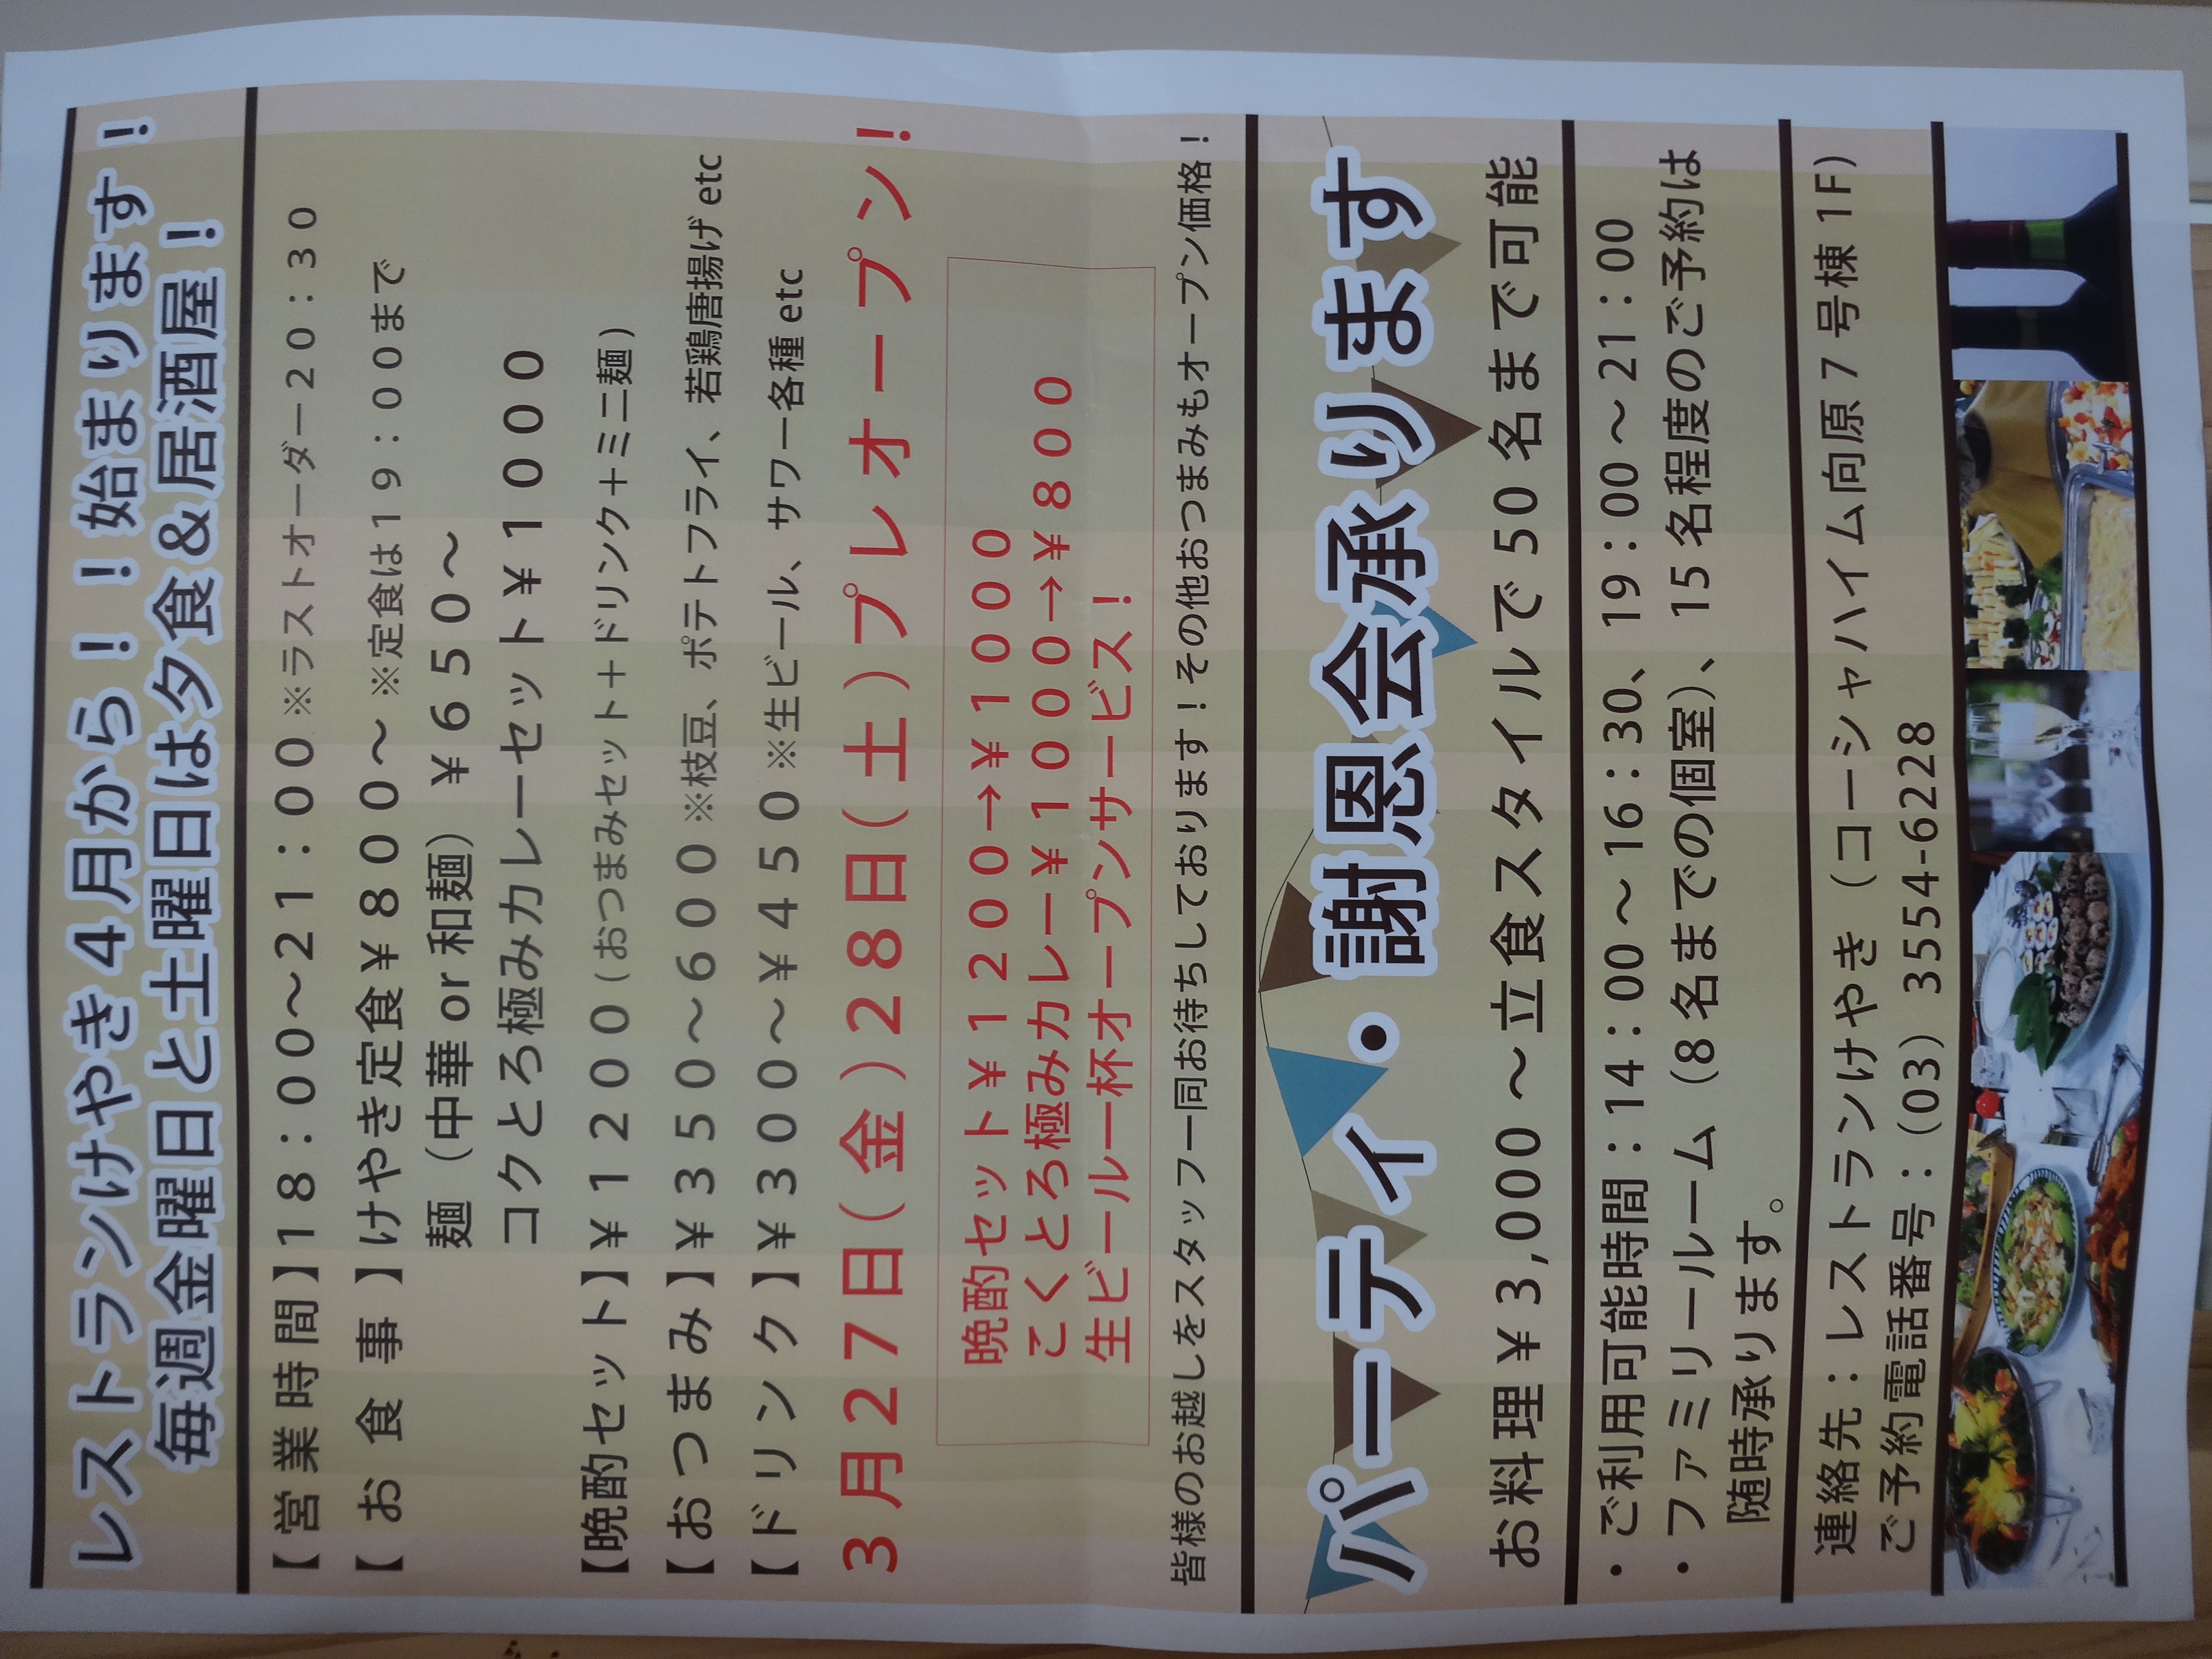 レストランけやき4月から！！始まります！
毎週金曜日と土曜日は夕食＆居酒屋！
【営業時間】18：00～21：00※ラストオーダー20：30
【お食事】けやき定食￥800～※定食は19：00まで
麺（中華or和麺）￥650～
コクとろ極みカレーセット￥1000
【晩酌セット】￥1200(おつまみセット＋ドリンク＋ミニ麺)
【おつまみ】￥350～600※枝豆、ポテトフライ、若鶏唐揚げetc
【ドリンク】￥300～￥450※生ビール、サワー各種etc
3月27日（金）28日（土）プレオープン！
晩酌セット￥1200→￥1000
こくとろ極みカレー￥1000→￥800
生ビール一杯オープンサービス！
皆様のお越しをスタッフ一同お待ちしております！その他おつまみもオープン価格！
パーティ・謝恩会承ります
お料理￥3,000～立食スタイルで50名まで可能
・ご利用可能時間：14：00～16：30、19：00～21：00
・ファミリールーム（8名までの個室）、15名程度のご予約は
随時承ります。
連絡先：レストランけやき（コーシャハイム向原7号棟1F）
ご予約電話番号：（03）3554-6228